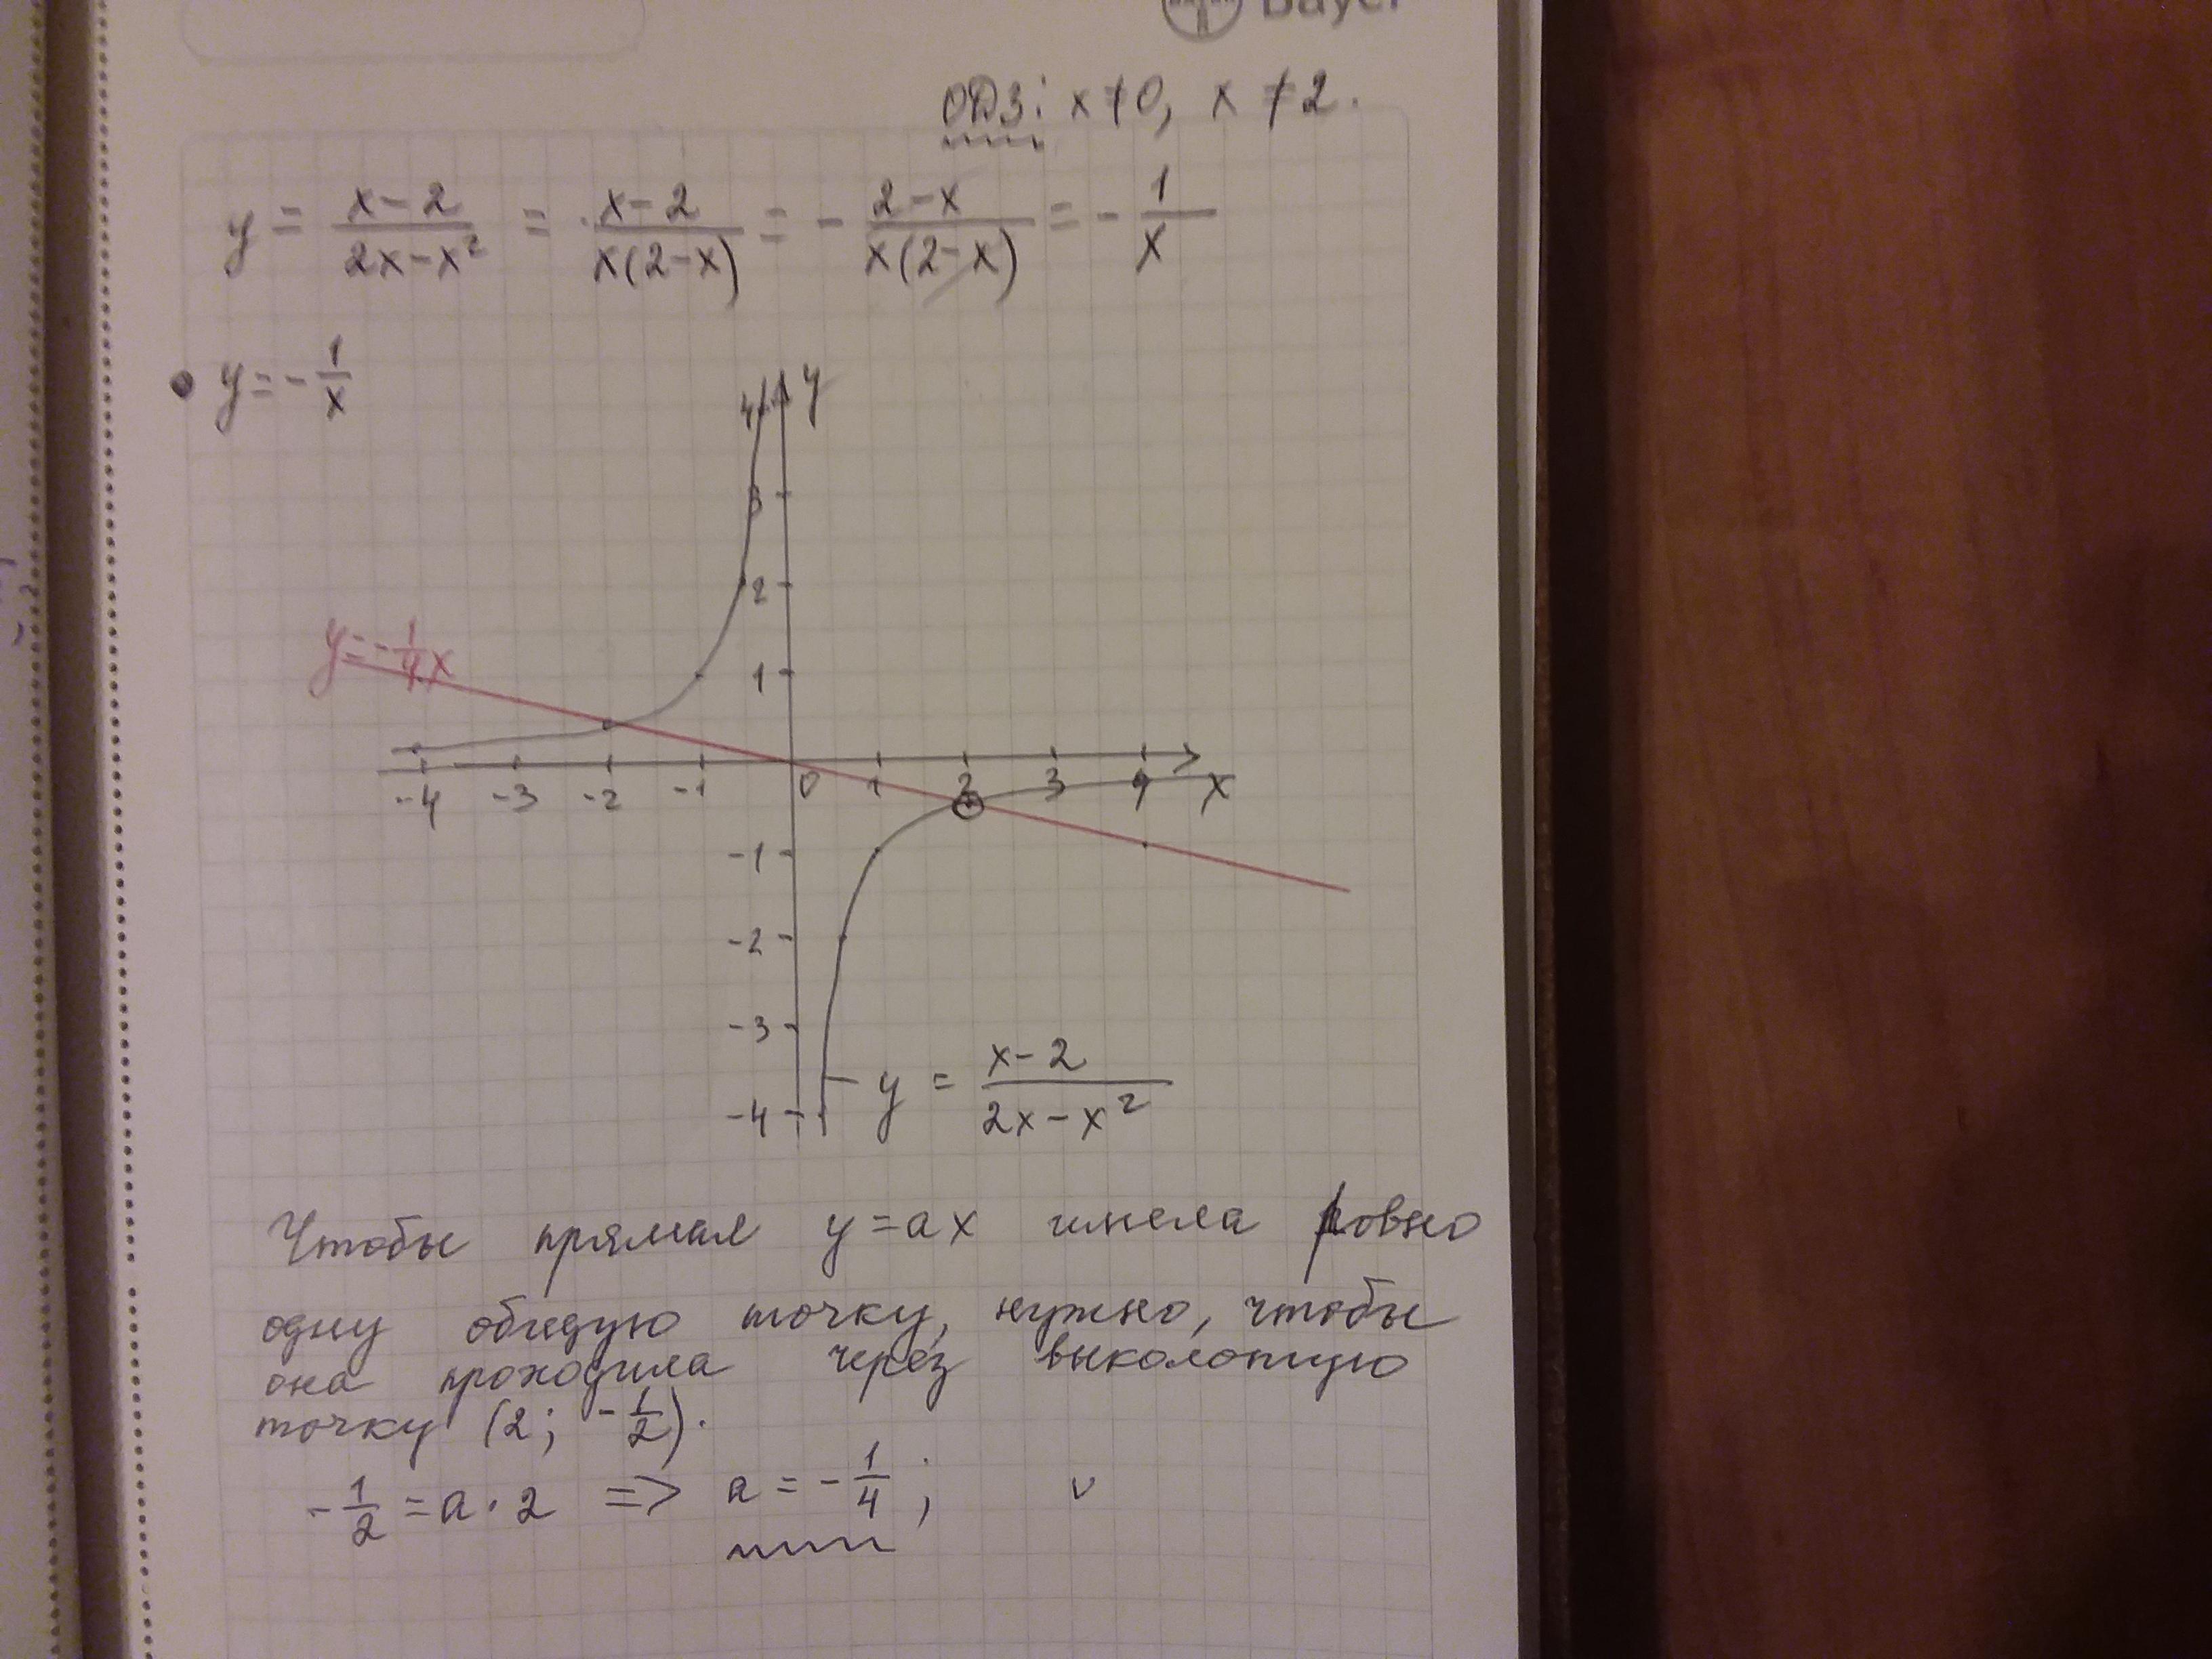 Bayer
ОДЗ: x ≠ 0, x ≠ 2.
y = (x-2)/(2x-x²) = (x-2)/(x(2-x)) = -(2-x)/(x(2-x)) = -1/x
• y = -1/x
y
4
3
2
1
y = -1/4 x
-4 -3 -2 -1 0 1 2 3 4 x
-1
-2
-3
-4
y = (x-2)/(2x-x²)
Чтобы прямая y = ax имела ровно
одну общую точку, нужно, чтобы
она проходила через выколотую
точку (2; -1/2).
-1/2 = a · 2 => a = -1/4;